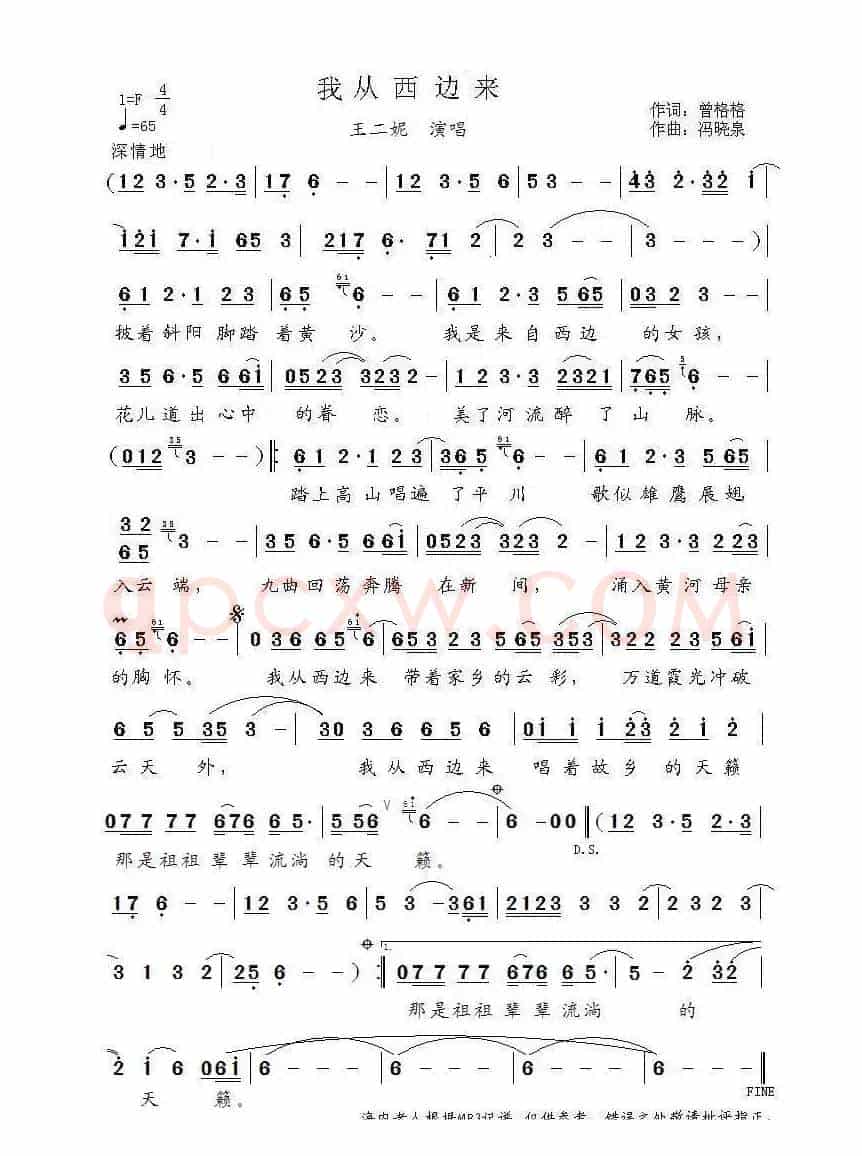 我从西边来
1=F 4/4
♩=65
王二妮 演唱
作词：曾格格
作曲：冯晓泉
深情地
(12 3·5 2·3 | 176 - - | 12 3·5 6 | 53 - - | 43 2·32 1
121 7·1 65 3 | 217 6· 71 2 | 2 3 - - | 3 - - )
61 2·1 23 | 65 61 6 - - | 61 2·3 565 | 0323 - - |
披着斜阳脚踏着黄沙。我是来自西边的女孩，
35 6·5 661 | 0523 3232 - | 12 3·23521 | 765 5 6 - - |
花儿道出心中的眷恋。美了河流醉了山脉。
(012 35 3 - - ) 61 2·123 | 365 61 6 - - | 61 2·3 565 |
踏上高山唱遍了平川 歌似雄鹰展翅
32 65 35 3 - - | 35 6·5 661 | 0523 323 2 - | 112 3·223 |
入云端，九曲回荡奔腾在新间，涌入黄河母亲
65 61 6 - - | 036 65 61 6 | 6532 3 565353 | 322 23561 |
的胸怀。我从西边来 带着家乡的云彩，万道霞光冲破
6 5 5 35 3 - | 30 3 6 6 6 5 6 | 01 1 1 23 2 2 1 2 |
云天外，我从西边来 唱着故乡的天籁
077 77 676 65· | 5 56 V 61 6 - - | 6 -00 ‖ (12 3·5 223
D.S.
那是祖祖辈辈流淌的天籁。
17 6 - - | 12 3·5 6 | 5 3 -361 | 2123 3 3 2 | 2 2 3
3 1 3 2 | 25 6 - - ) 1. 077 77 676 65· | 5 - 2 32
那是祖祖辈辈流淌的
2 1 6 061 | 6 - - | 6 - - | 6 - - | 6 - - ‖
FINE
天籁。
海内老人根据MP3记谱,仅供参考。错误之处敬请批评指正。
qpcxw.com